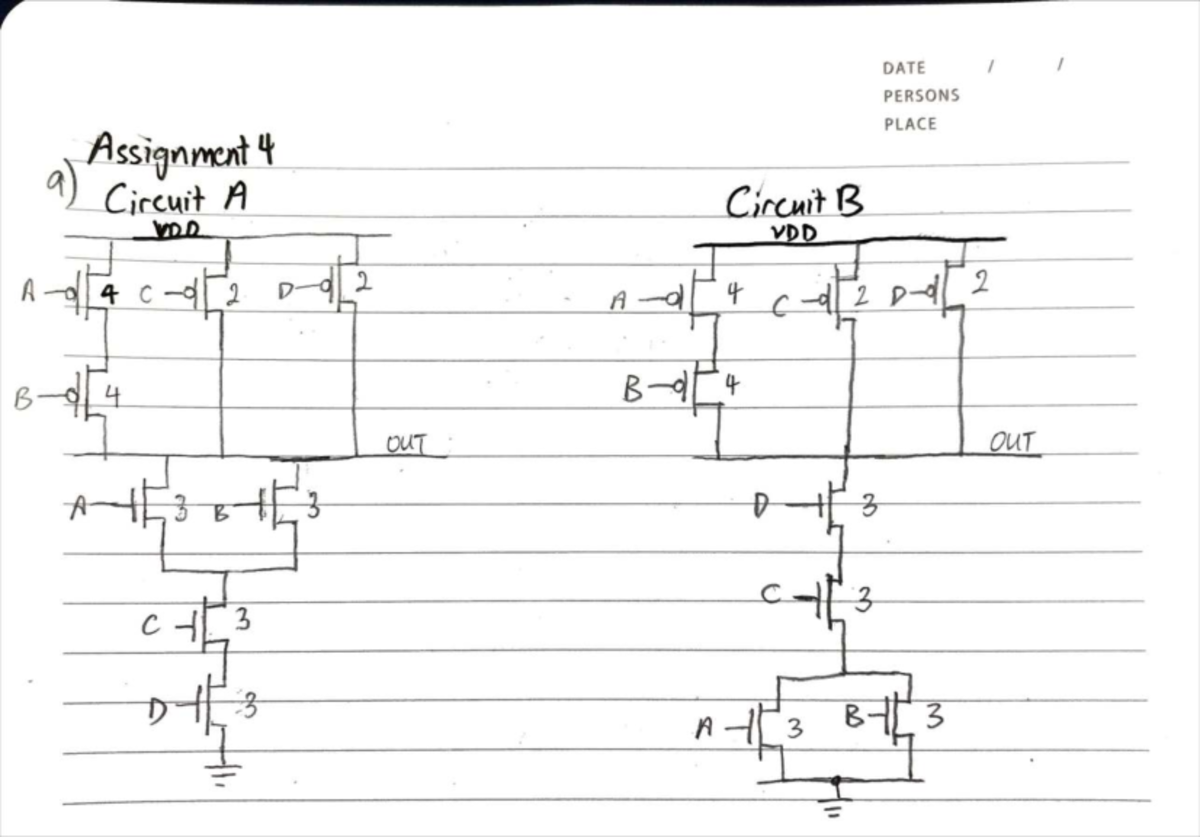 DATE / /
PERSONS
PLACE
Assignment 4
a) Circuit A
VDD
A 4 C 2 D 2
B 4
OUT
A 3 B 3
C 3
D 3
Circuit B
VDD
A 4 C 2 D 2
B 4
OUT
D 3
C 3
A 3 B 3